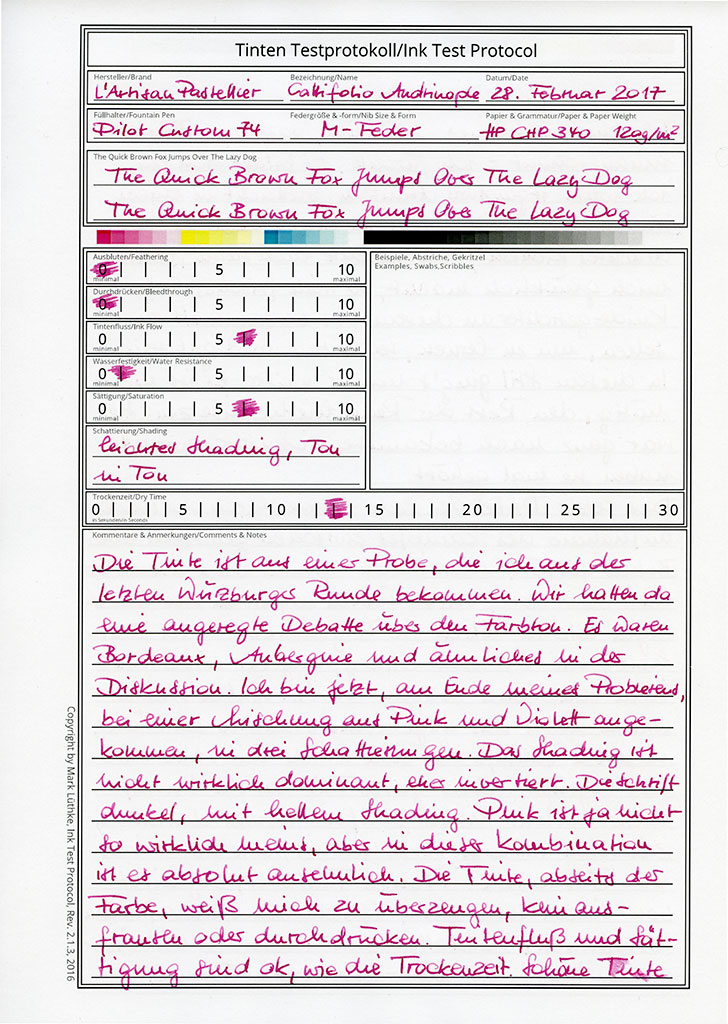 Tinten Testprotokoll/Ink Test Protocol
Hersteller/Brand Bezeichnung/Name Datum/Date
L'Artisan Pastellier Callifolio Andrinople 28. Februar 2017
Füllhalter/Fountain Pen Federgröße & -form/Nib Size & Form Papier & Grammatur/Paper & Paper Weight
Pilot Custom 74 M-Feder HP CHP 340 120g/m²
The Quick Brown Fox Jumps Over The Lazy Dog
The Quick Brown Fox Jumps Over The Lazy Dog
The Quick Brown Fox Jumps Over The Lazy Dog
Ausbluten/Feathering
0 5 10
minimal maximal
Durchdrücken/Bleedthrough
0 5 10
minimal maximal
Tintenfluss/Ink Flow
0 5 10
minimal maximal
Wasserfestigkeit/Water Resistance
0 5 10
minimal maximal
Sättigung/Saturation
0 5 10
minimal maximal
Schattierung/Shading
leichtes Shading, Ton
in Ton
Beispiele, Abstriche, Gekritzel
Examples, Swabs,Scribbles
Trockenzeit/Dry Time
0 5 10 15 20 25 30
in Sekunden/in Seconds
Kommentare & Anmerkungen/Comments & Notes
Die Tinte ist aus einer Probe, die ich aus der
letzten Würzburger Runde bekommen. Wir hatten da
eine angeregte Debatte über den Farbton. Es waren
Bordeaux, Aubergine und ähnliches in der
Diskussion. Ich bin jetzt, am Ende meines Probierens,
bei einer Mischung aus Pink und Violett ange-
kommen, in drei Schattierungen. Das Shading ist
nicht wirklich dominant, eher invertiert. Die Schrift
dunkel, mit hellem Shading. Pink ist ja nicht
so wirklich meins, aber in dieser Kombination
ist es absolut ansehnlich. Die Tinte, abseits der
Farbe, weiß mich zu überzeugen, kein aus-
fransen oder durchdrücken. Tintenfluß und Sät-
tigung sind ok, wie die Trockenzeit. Schöne Tinte
Copyright by Mark Lüthke, Ink Test Protocol, Rev. 2.1.3, 2016